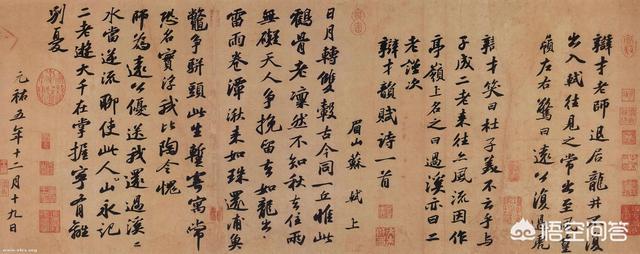 辯才老師退居龍井不復
出入軾往見之常出至風篁
嶺左右驚曰遠公復過虎
辯才笑曰杜子美不云乎與
子成二老來往亦風流因作
亭嶺上名之曰過溪亦曰二
老謹次
辯才韻賦詩一首
眉山蘇軾上
日月轉雙轂古今同一丘惟此
鶴骨老凜然不知秋去住兩
無礙天人爭挽留去如龍出山
雷雨卷潭湫來如珠還浦魚
鱉爭駢頭此生暫寄寓常
恐名實浮我比陶令愧
師為遠公優送我還過溪溪
水當逆流聊使此人山永記
二老遊大千在掌握寧有離
別憂
元祐五年十二月十九日
悟空问答